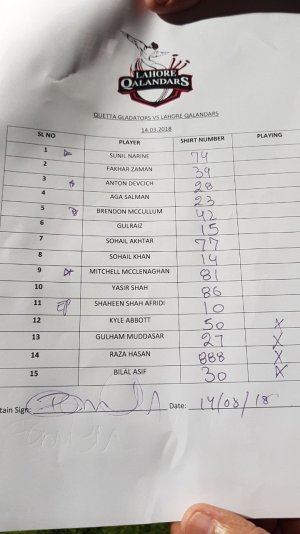 LAHORE
QALANDARS
QUETTA GLADATORS VS LAHORE QALANDARS
14.03.2018
SL NO PLAYER SHIRT NUMBER PLAYING
1 SUNIL NARINE 74
2 FAKHAR ZAMAN 39
3 ANTON DEVCICH 28
4 AGA SALMAN 23
5 BRENDON MCCULLUM 42
6 GULRAIZ 15
7 SOHAIL AKHTAR 77
8 SOHAIL KHAN 14
9 MITCHELL MCCLENAGHAN 81
10 YASIR SHAH 86
11 SHAHEEN SHAH AFRIDI 10
12 KYLE ABBOTT 50 X
13 GULHAM MUDDASAR 27 X
14 RAZA HASAN 888 X
15 BILAL ASIF 30 X
tain Sign: Date: 14/03/18